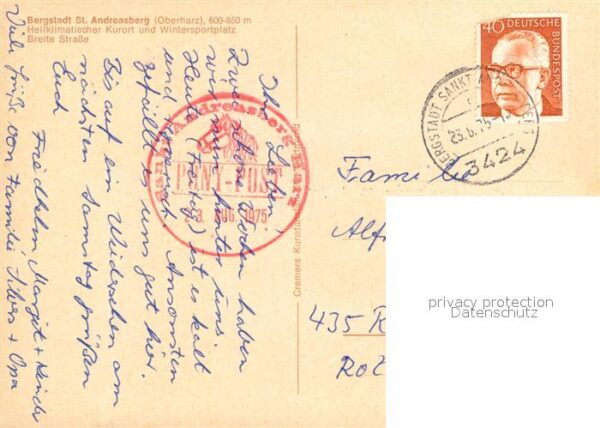 Bergstadt St. Andreasberg (Oberharz), 600-850 m
Heilklimatischer Kurort und Wintersportplatz
Breite Straße
Ihr Lieben!
Zwei schöne Wochen haben
wir nun hinter uns
Heute (Freitag) ist es kalt
und Ansonsten
gefällt es uns gut hier.
Bis auf ein Wiedersehen am
nächsten Samstag grüßen
Euch
Friedhelm Margit + Heinch
Viele Grüße von Familie + Opa
Sankt Andreasberg Harz
PONY-POST
23. AUG. 1975
Cramers Kunstan
40
DEUTSCHE
BUNDESPOST
BERGSTADT SANKT ANDREASBERG
3424
Familie
Alf
435 R
privacy protection
Datenschutz